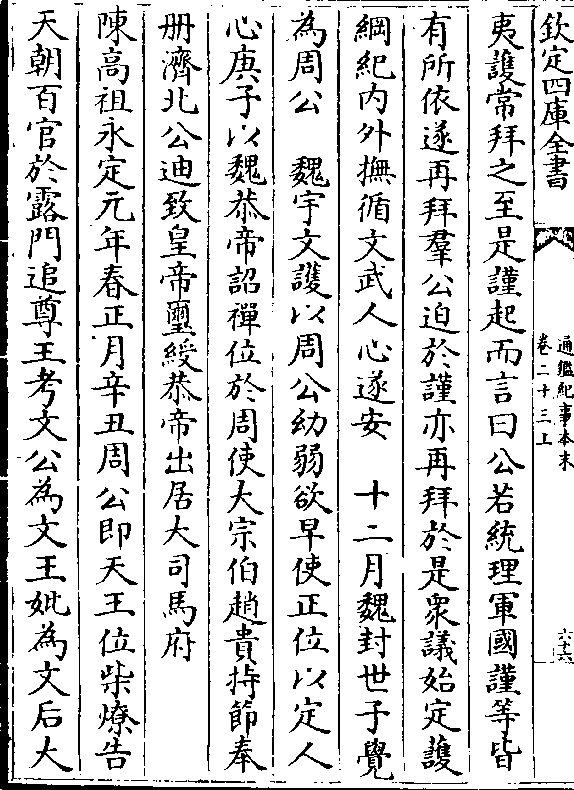 欽定四庫全書
通鑑紀事本末
卷二十三上
六十六
夷護常拜之至是謹起而言曰公若統理軍國謹等皆
有所依遂再拜羣公迫於謹亦再拜於是衆議始定護
綱紀内外撫循文武人心遂安　十二月魏封世子覺
為周公　魏宇文護以周公幼弱欲早使正位以定人
心庚子以魏恭帝詔禪位於周使大宗伯趙貴持節奉
册濟北公迪致皇帝璽綬恭帝出居大司馬府
陳高祖永定元年春正月辛丑周公即天王位柴燎告
天朝百官於露門追尊王考文公為文王妣為文后大